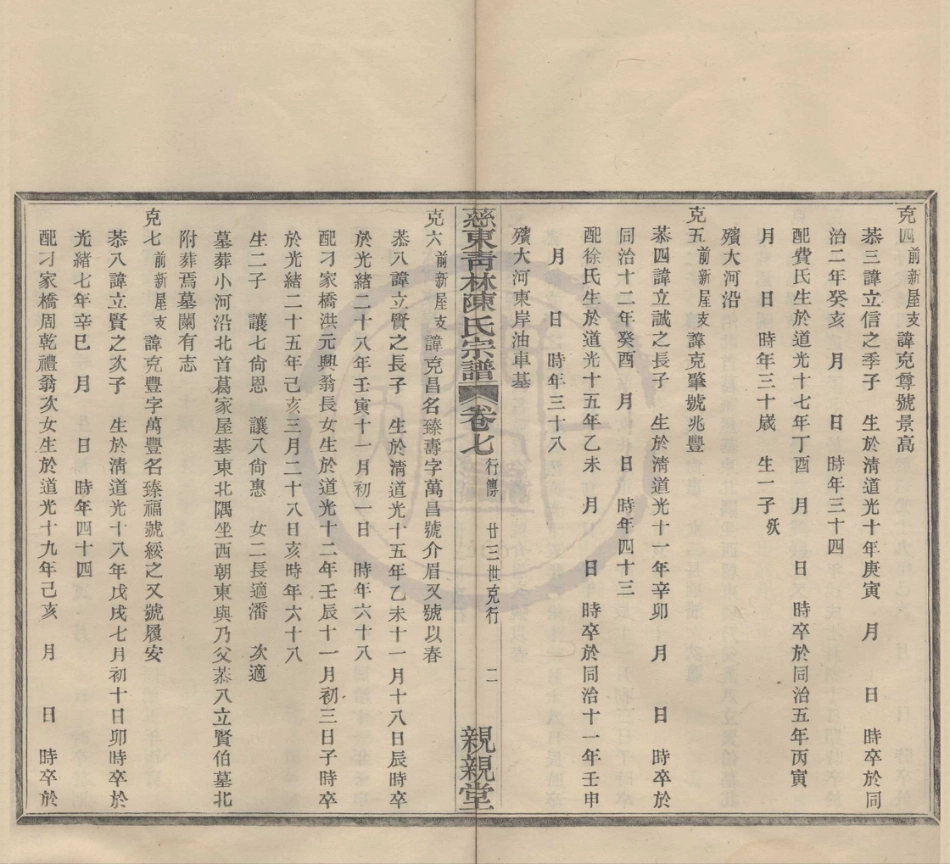 克四前新屋支諱克尊號景高
恭三諱立信之季子 生於清道光十年庚寅 月 日 時卒於同
治二年癸亥 月 日 時年三十四
配費氏生於道光十七年丁酉 月 日 時卒於同治五年丙寅
月 日 時年三十歲 生一子殀
殯大河沿
克五前新屋支諱克肇號兆豐
恭四諱立誠之長子 生於清道光十一年辛卯 月 日 時卒於
同治十二年癸酉 月 日 時年四十三
配徐氏生於道光十五年乙未 月 日 時卒於同治十一年壬申
月 日 時年三十八
殯大河東岸油車基
慈東青林陳氏宗譜 卷七 行傳 廿三世克行 二 親親堂
克六前新屋支諱克昌名臻壽字萬昌號介眉又號以春
恭八諱立賢之長子 生於清道光十五年乙未十一月十八日辰時卒
於光緒二十八年壬寅十一月初一日 時年六十八
配刁家橋洪元興翁長女生於道光十二年壬辰十一月初三日子時卒
於光緒二十五年己亥三月二十八日亥時年六十八
生二子 讓七尙恩 讓八尙惠 女二長適潘 次適
墓葬小河沿北首葛家屋基東北隅坐西朝東與乃父恭八立賢伯墓北
附葬焉墓闌有志
克七前新屋支諱克豐字萬豐名臻福號綏之又號履安
恭八諱立賢之次子 生於清道光十八年戊戌七月初十日卯時卒於
光緒七年辛巳 月 日 時年四十四
配刁家橋周乾禮翁次女生於道光十九年己亥 月 日 時卒於